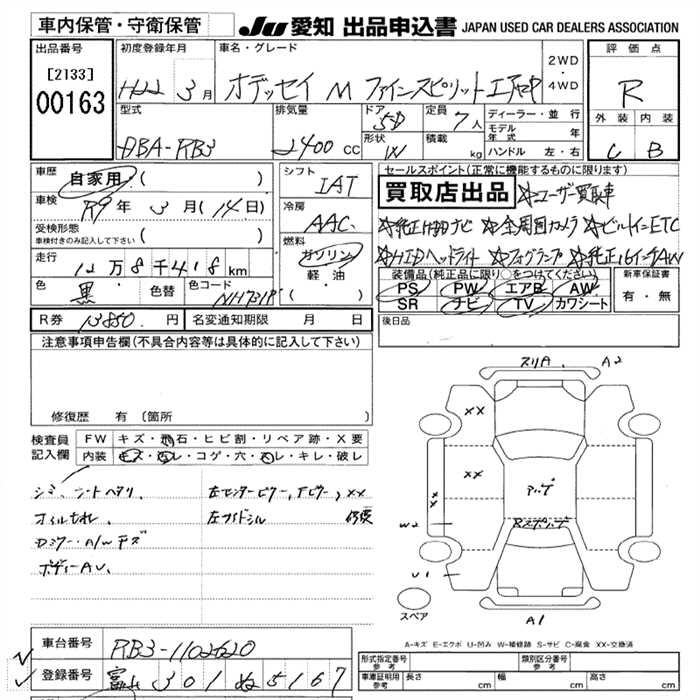 車内保管・守衛保管
JU愛知 出品申込書 JAPAN USED CAR DEALERS ASSOCIATION
出品番号
[2133]
00163
初度登録年月
H22 3月
車名・グレード
オデッセイ M ファインスピリット エアロ
2WD
・
4WD
評価点
R
型式
DBA-RB3
排気量
2400 CC
ドア 5D
形状 W
定員 7人
積載 kg
ディーラー・並行
モデル年式 年
ハンドル 左・右
外装 内装
C B
車歴 自家用・( )
車検 R9年 3月(14日)
受検形態
車検付きのみ記入して下さい ( )
走行 12万8千418km
色 黒 色替 色コード NH731P
シフト
IAT
冷房
AAC
燃料
ガソリン
軽油
・( )
セールスポイント(正常に機能するものに限ります)
買取店出品 ☆ユーザー買取車
☆純正HDDナビ ☆全周囲カメラ ☆ビルトインETC
☆HIDヘッドライト ☆フォグランプ ☆純正16インチAW
装備品(純正品に限り○をつけてください)
PS PW エアB AW
SR ナビ TV カワシート
新車保証書
有・無
R券 13850 円 名変通知期限 月 日
後日品
注意事項申告欄(不具合内容等は具体的に記入して下さい)
修復歴 有(箇所
検査員記入欄
FW キズ・飛石・ヒビ割・リペア跡・X要
内装 キズ・汚レ・コゲ・穴・スレ・キレ・破レ
シミ、シートヘタリ、
オイルもれ、
Dミラー・A/Wキズ
ボディーAU、
左センターピラー、Fピラー、XX
左サイドシル 修復
スリA、 A2
XX
XX
XX
W2
U1
A1
スペア
A-キズ E-エクボ U-凹み W-補修跡 S-サビ C-腐食 XX-交換済
車台番号 RB3-1102620
登録番号 富山 301 ぬ 5167
形式指定番号 参考
類別区分番号 参考
車庫証明用 参考 長さ cm 幅 cm 高さ cm